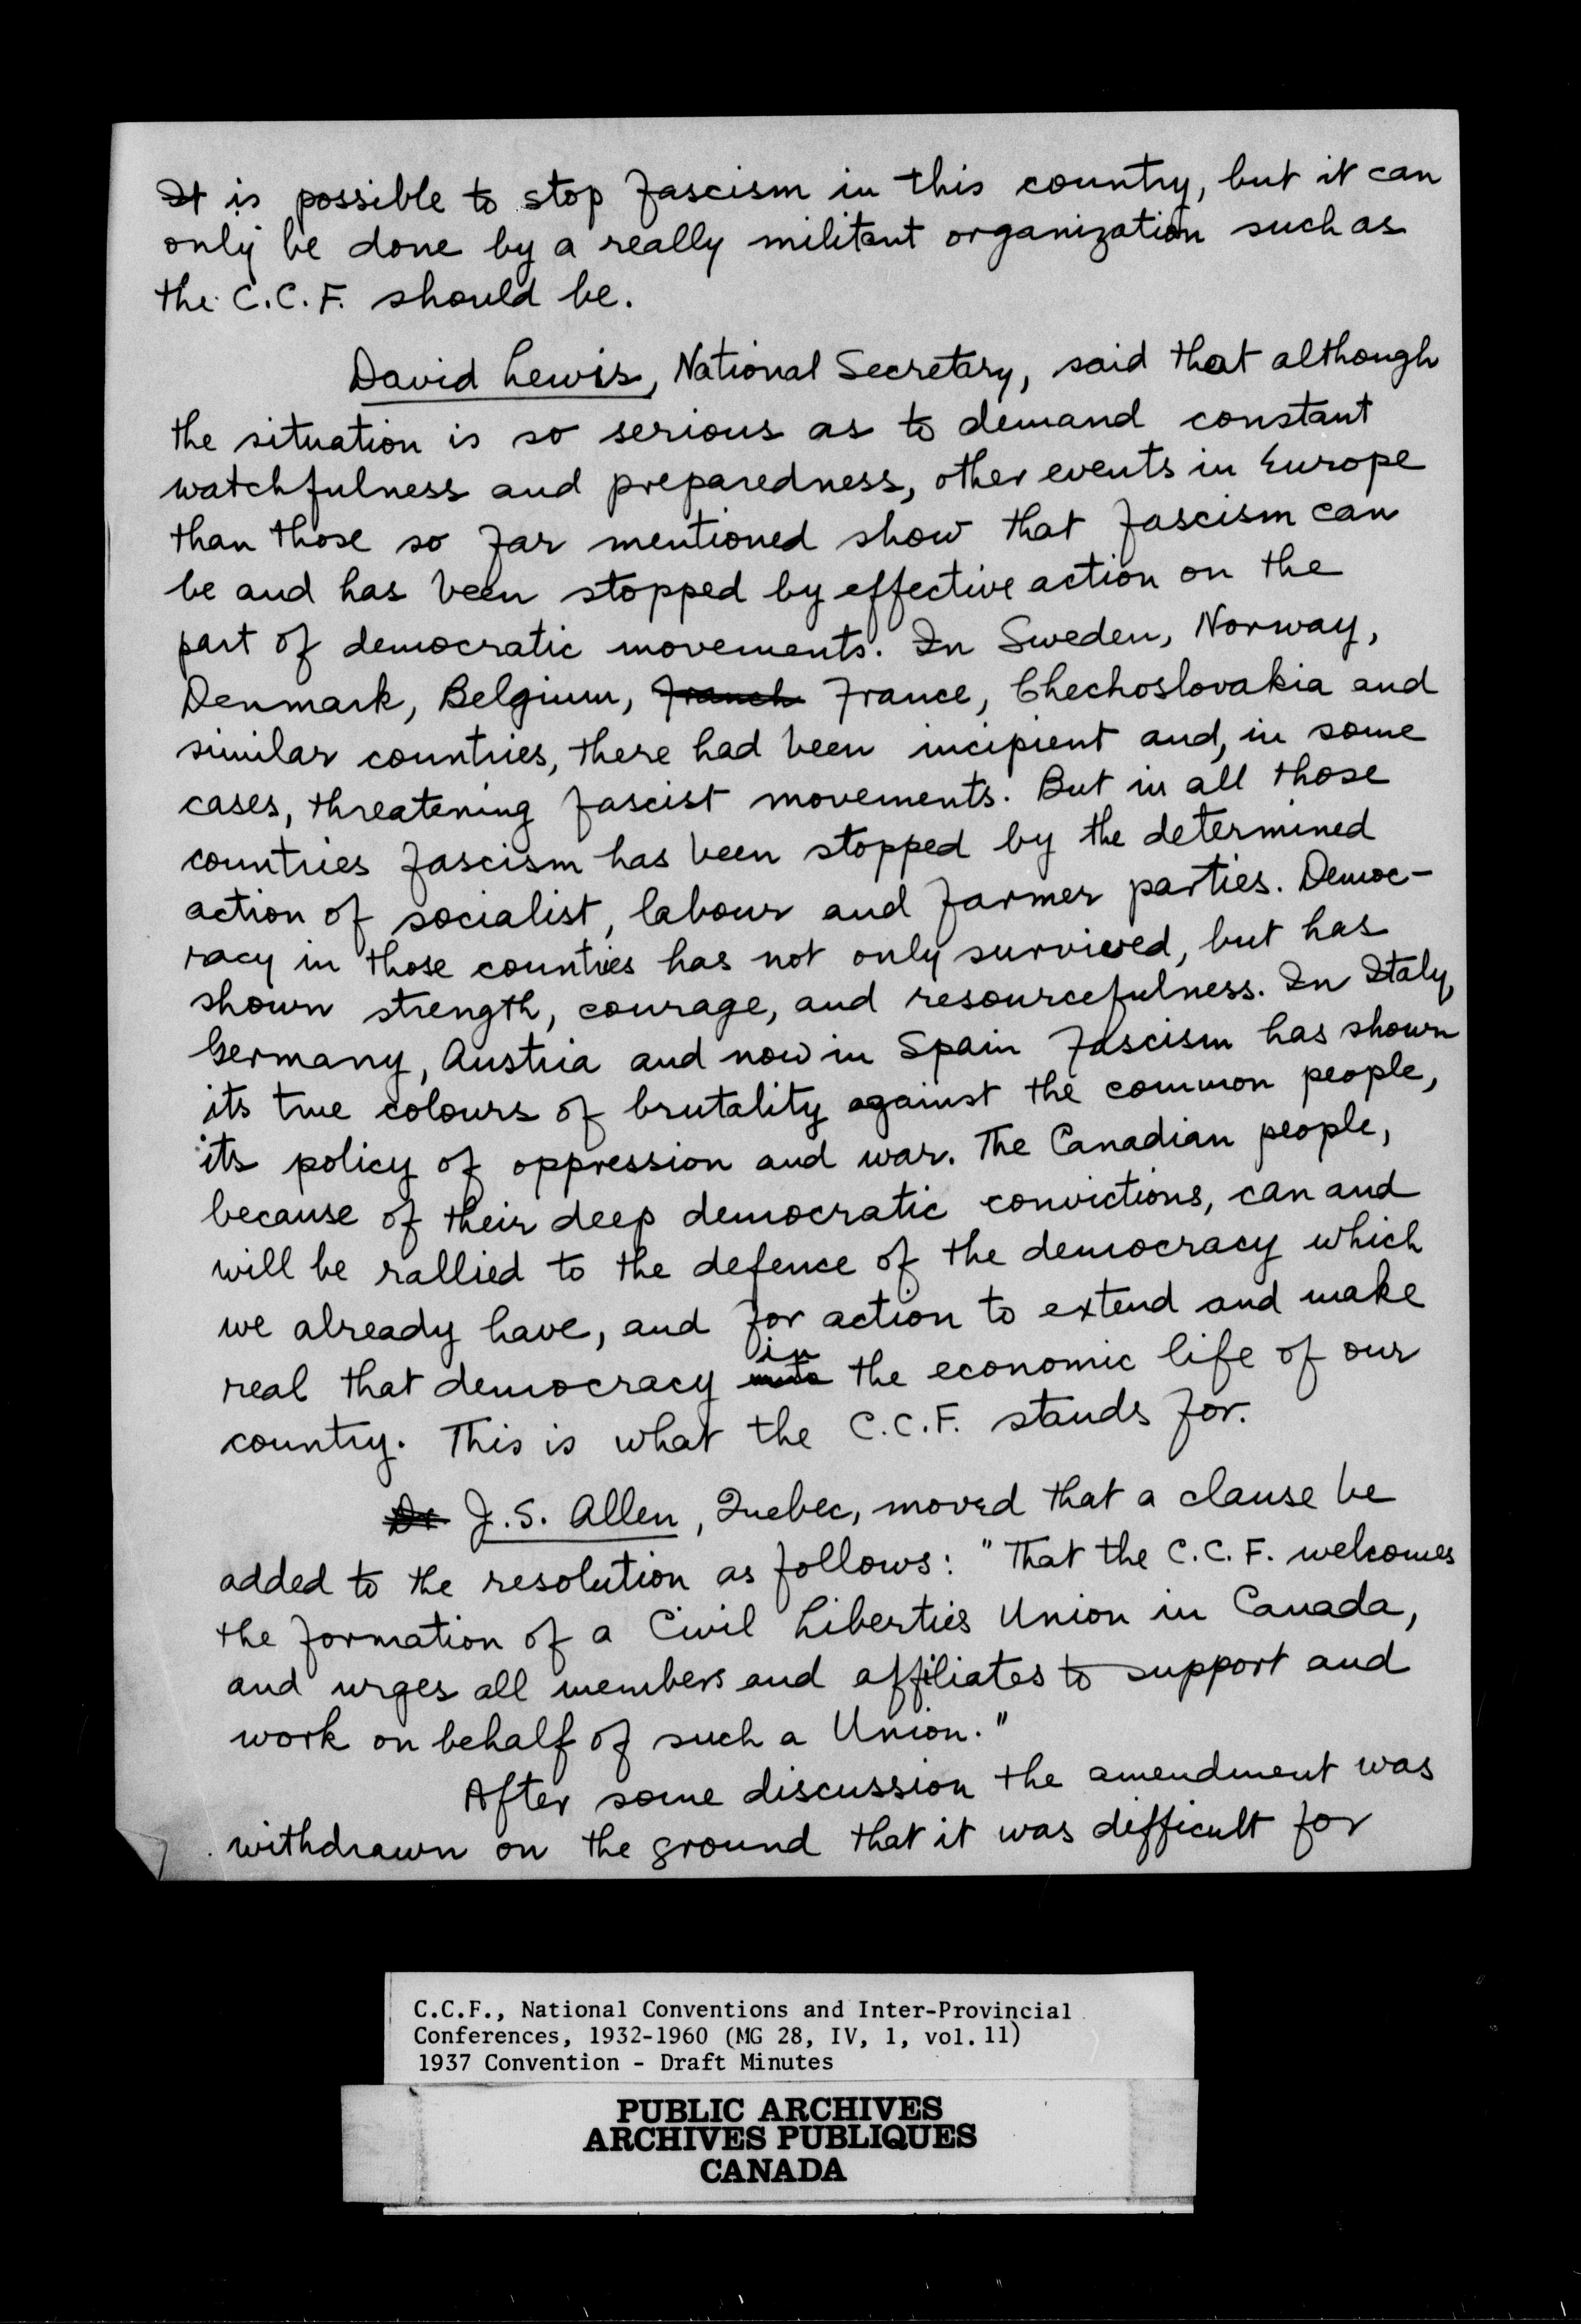 It is possible to stop fascism in this country, but it can
only be done by a really militant organization such as
the C.C.F. should be.
David Lewis, National Secretary, said that although
the situation is so serious as to demand constant
watchfulness and preparedness, other events in Europe
than those so far mentioned show that fascism can
be and has been stopped by effective action on the
part of democratic movements. In Sweden, Norway,
Denmark, Belgium, Franch France, Chechoslovakia and
similar countries, there had been incipient and, in some
cases, threatening fascist movements. But in all those
countries fascism has been stopped by the determined
action of socialist, labour and farmer parties. Democ-
racy in those counties has not only survived, but has
shown strength, courage, and resourcefulness. In Italy,
Germany, Austria and now in Spain Fascism has shown
its true colours of brutality against the common people,
its policy of oppression and war. The Canadian people,
because of their deep democratic convictions, can and
will be rallied to the defence of the democracy which
we already have, and for action to extend and make
real that democracy in the economic life of our
country. This is what the C.C.F. stands for.
Dr J.S. Allen, Quebec, moved that a clause be
added to the resolution as follows: "That the C.C.F. welcomes
the formation of a Civil Liberties Union in Canada,
and urges all members and affiliates to support and
work on behalf of such a Union."
After some discussion the amendment was
withdrawn on the ground that it was difficult for
C.C.F., National Conventions and Inter-Provincial
Conferences, 1932-1960 (MG 28, IV, 1, vol. 11)
1937 Convention - Draft Minutes
PUBLIC ARCHIVES
ARCHIVES PUBLIQUES
CANADA